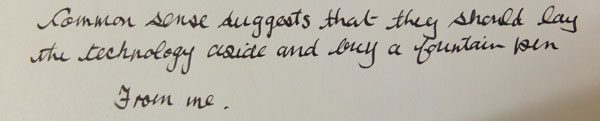 Common sense suggests that they should lay
the technology aside and buy a fountain pen
From me.